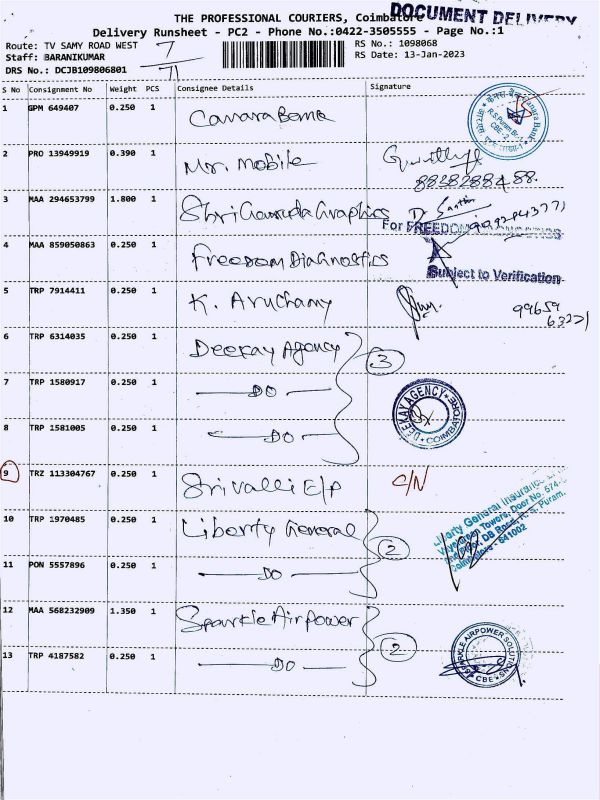 THE PROFESSIONAL COURIERS, Coimbatore
DOCUMENT DELIVERY
Delivery Runsheet - PC2 - Phone No.:0422-3505555 - Page No.:1
Route: TV SAMY ROAD WEST
RS No.: 1098068
Staff: BARANIKUMAR
RS Date: 13-Jan-2023
DRS No.: DCJB109806801
S No Consignment No Weight PCS Consignee Details Signature
1 GPM 649407 0.250 1 Canara Bank
2 PRO 13949919 0.390 1 Mr. Mobile
8838288488.
3 MAA 294653799 1.800 1 Shri Garuda Graphics
For FREEDOM
4 MAA 859050863 0.250 1 Freedom Diagnostics
Subject to Verification
5 TRP 7914411 0.250 1 K. Aruchamy
99659
63221
6 TRP 6314035 0.250 1 Deekay Agency
3
7 TRP 1580917 0.250 1 — DO —
DEEKAY AGENCY
COIMBATORE
8 TRP 1581005 0.250 1 — DO —
9 TRZ 113304767 0.250 1 Srivalli E/P C/N
10 TRP 1970485 0.250 1 Liberty General
2
Liberty General Insurance
Green Towers, Door No. 574
DB Road, R. S. Puram,
Coimbatore - 641002
11 PON 5557896 0.250 1 — DO —
12 MAA 568232909 1.350 1 Sparkle Airpower
2
SPARKLE AIRPOWER SOLUTIONS
CBE
13 TRP 4187582 0.250 1 — DO —